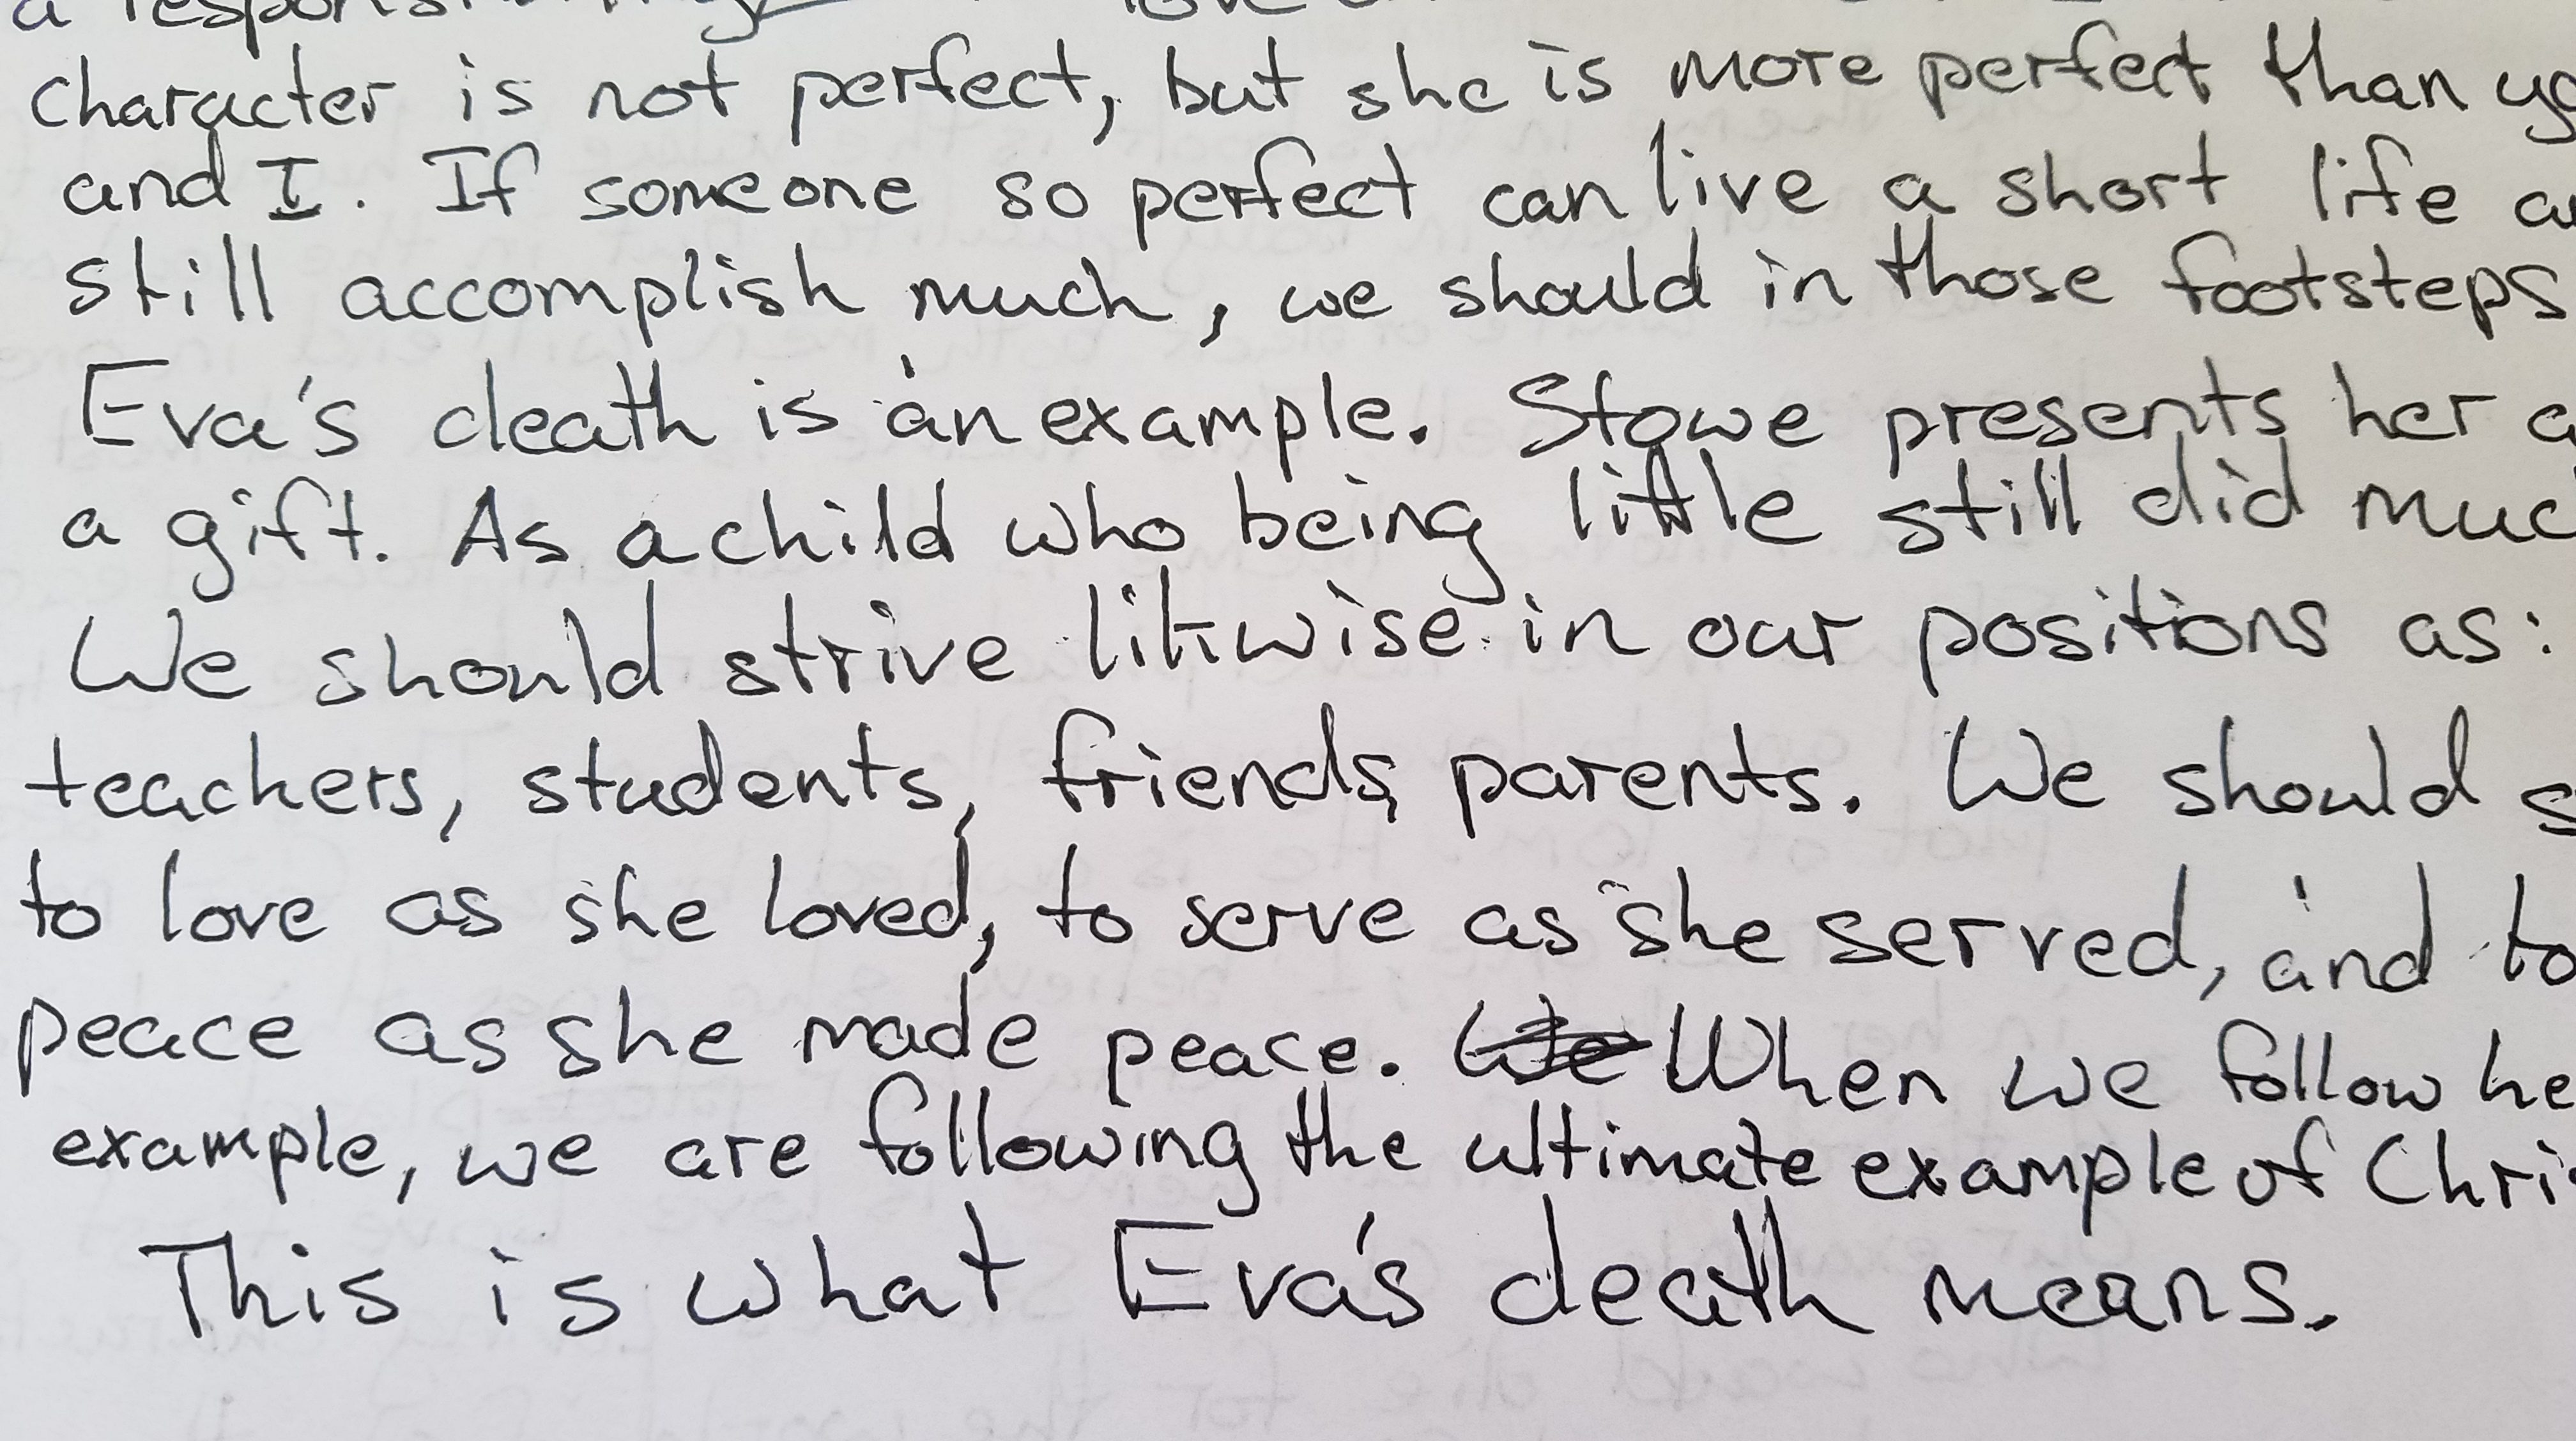 a
character is not perfect, but she is more perfect than
and I. If someone so perfect can live a short life
still accomplish much, we should in those footsteps
Eva's death is an example. Stowe presents her
a gift. As a child who being little still did
We should strive likwise in our positions as:
teachers, students, friends, parents. We should
to love as she loved, to serve as she served, and to
peace as she made peace. When we follow
example, we are following the ultimate example of
This is what Eva's death means.